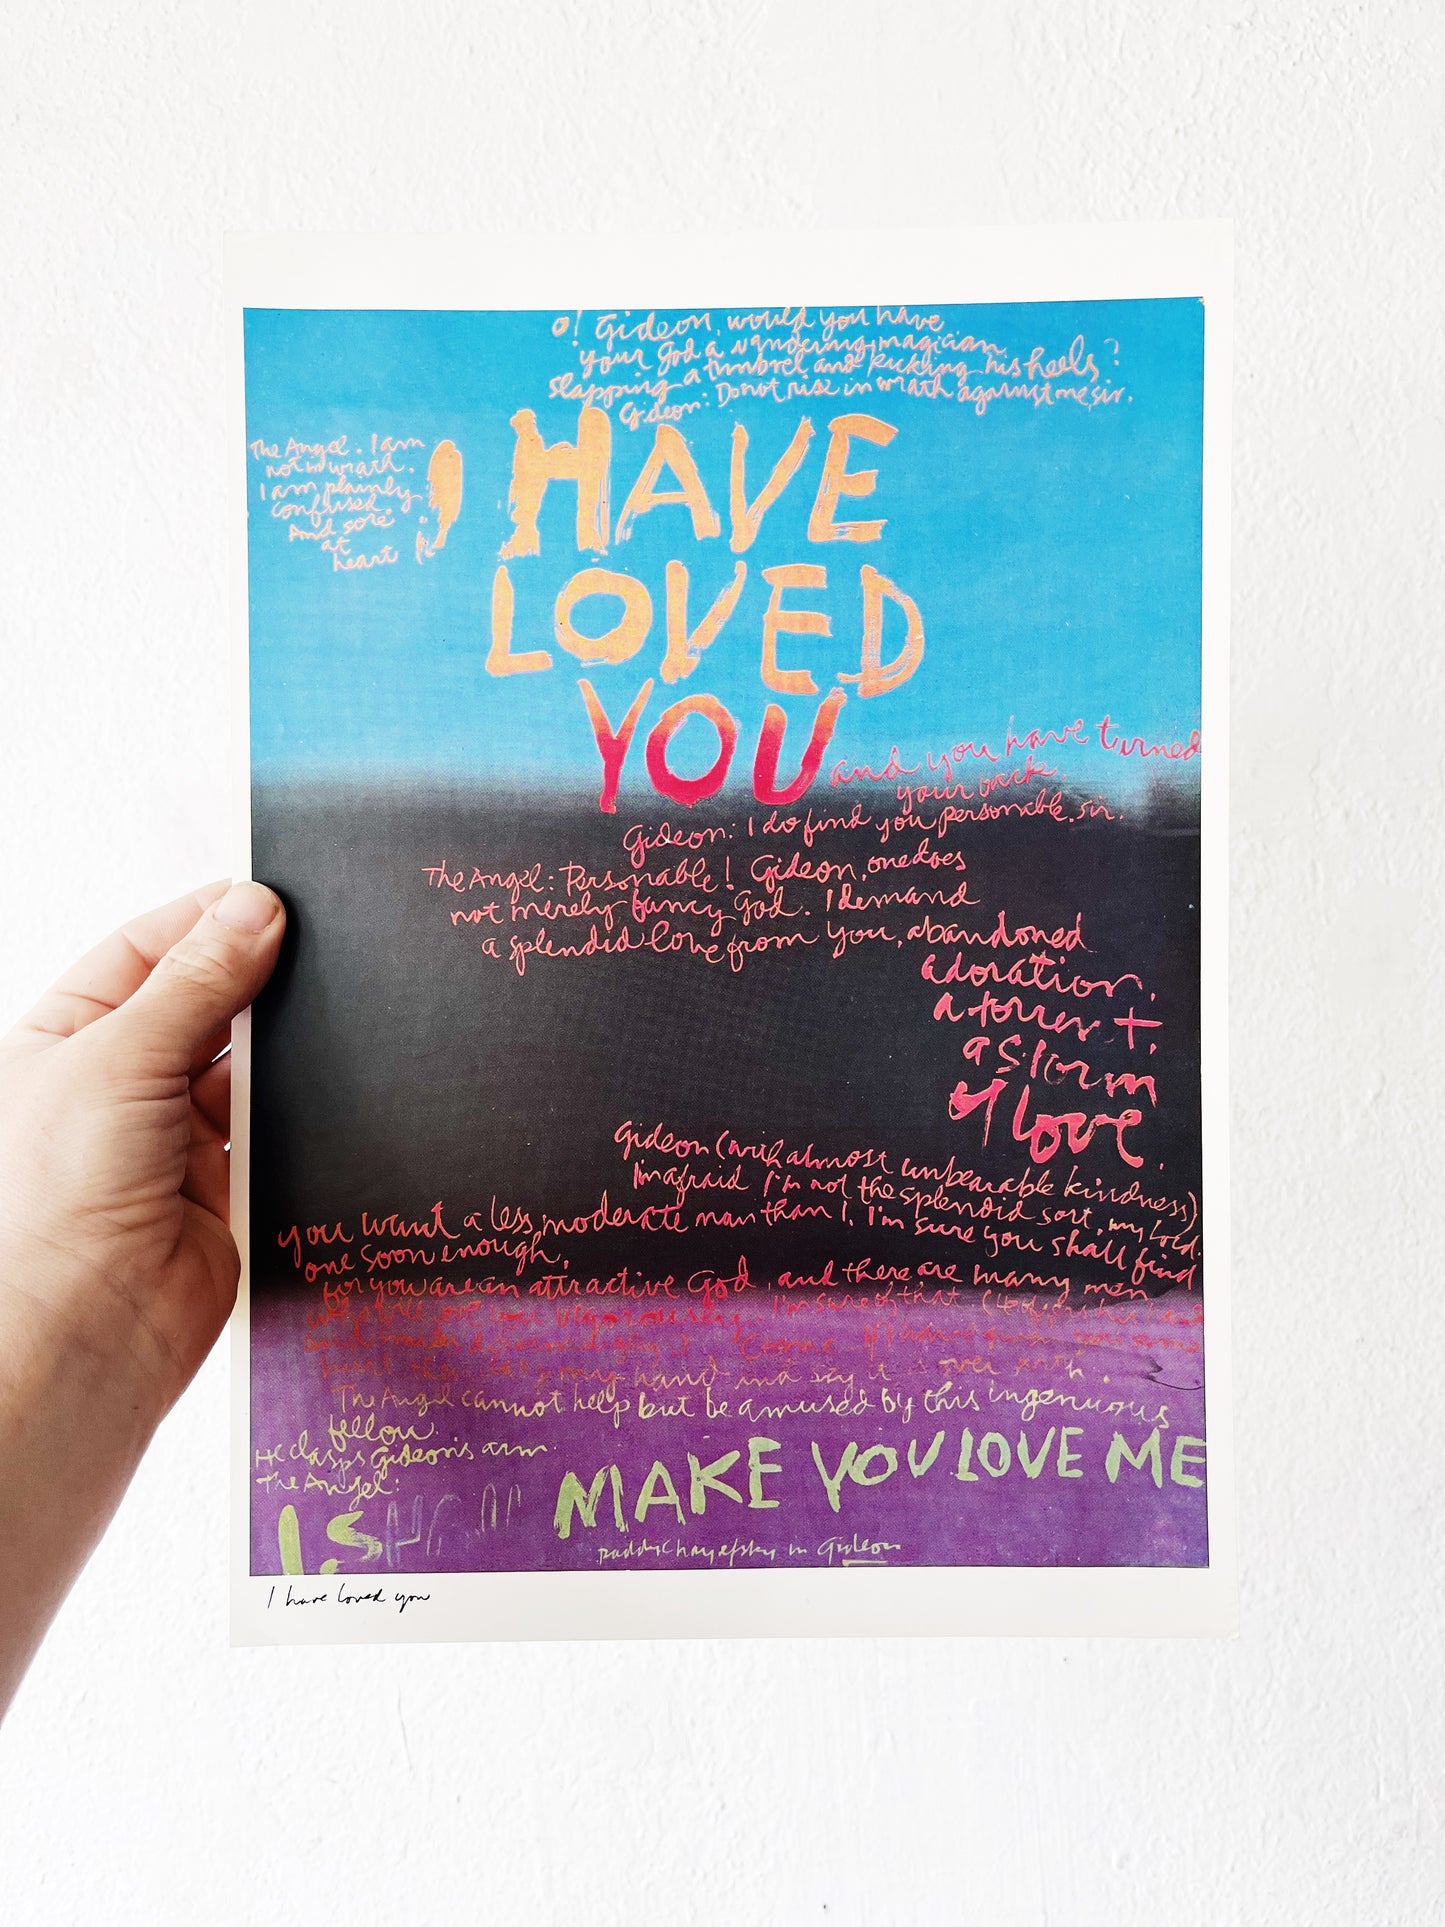 O! Gideon, would you have
your God a wandering magician,
slapping a timbrel and kicking his heels?
Gideon: Do not rise in wrath against me, sir.
The Angel. I am
not in wrath.
I am plainly
confused.
And sore
at
heart
I HAVE
LOVED
YOU
and you have turned
your back.
Gideon: I do find you personable, sir.
The Angel: Personable! Gideon, one does
not merely fancy God. I demand
a splendid love from you, abandoned
adoration,
a torrent,
a storm
of love.
Gideon (with almost unbearable kindness)
I'm afraid I'm not the splendid sort, my Lord.
You want a less moderate man than I. I'm sure you shall find
one soon enough,
for you are an attractive God, and there are many men
who will love you vigorously. I'm sure of that.
my hand and say it is over with.
The Angel cannot help but be amused by this ingenuous
fellow.
He clasps Gideon's arm.
The Angel:
I SHALL MAKE YOU LOVE ME
paddy chayefsky in Gideon
I have loved you